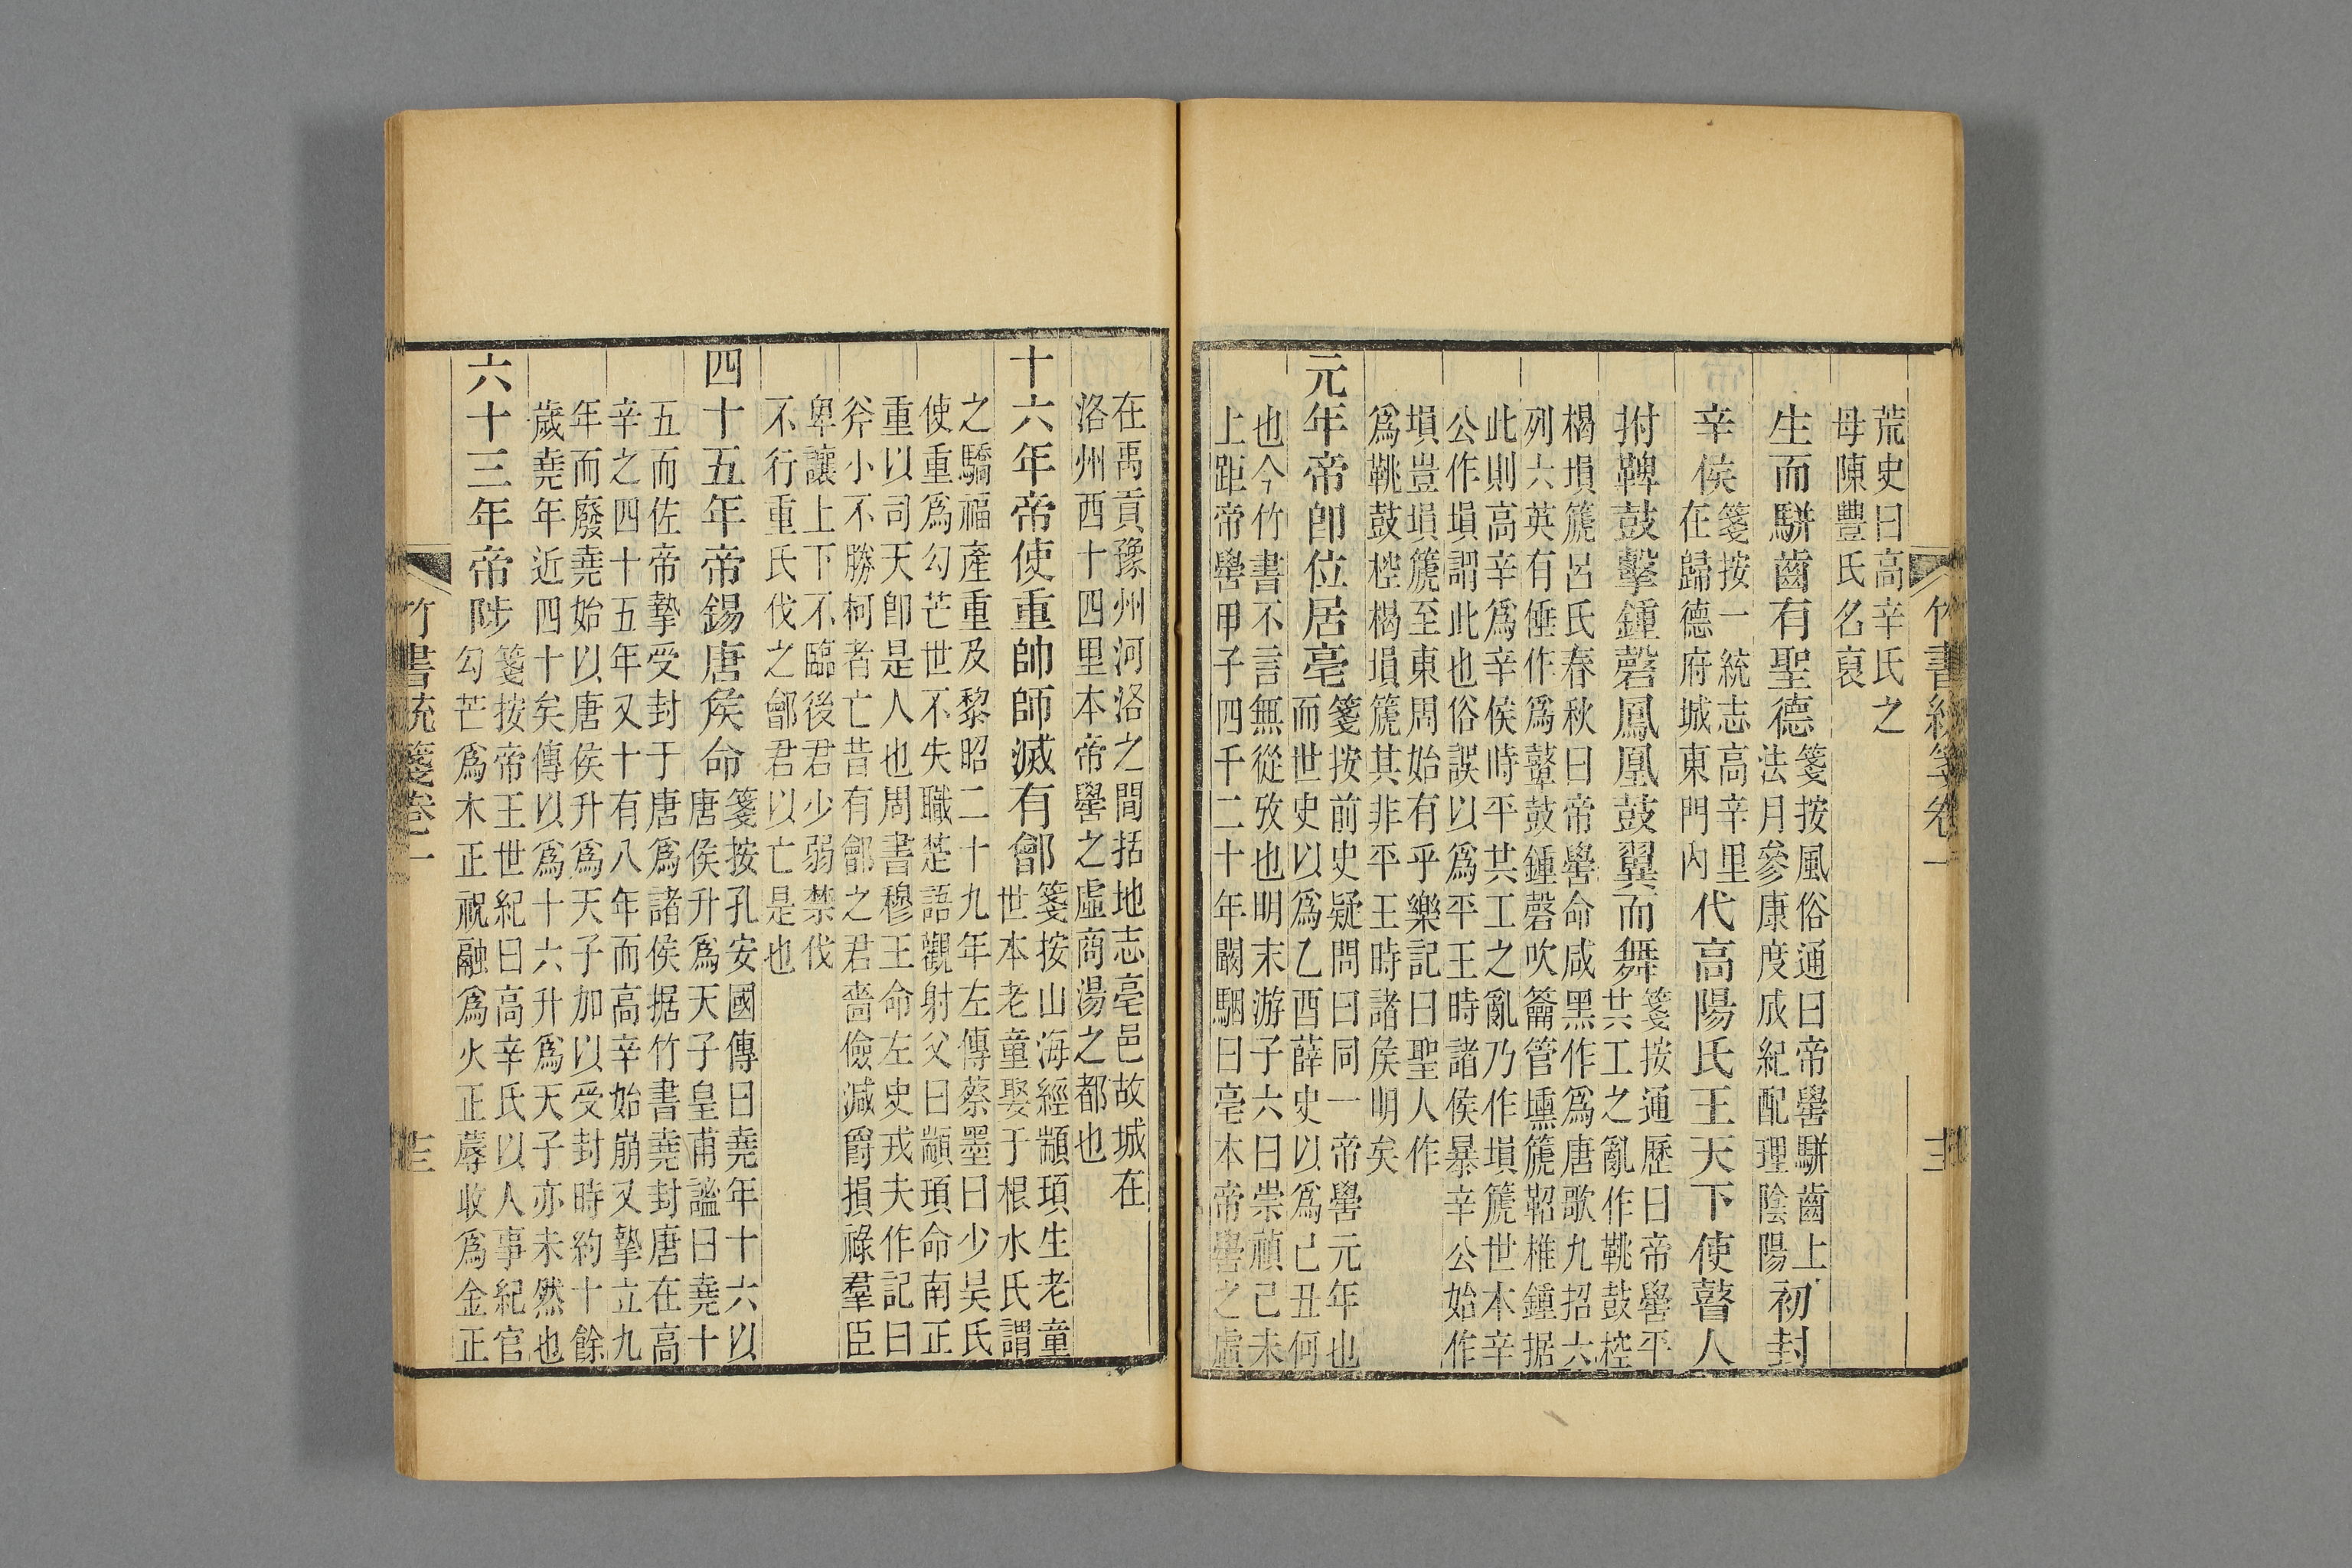 竹書統箋卷一
荒史曰高辛氏之
母陳豐氏名裒
生而駢齒有聖德
箋按風俗通曰帝嚳駢齒上
法月參康度成紀配理陰陽
初封
辛侯
箋按一統志高辛里
在歸德府城東門內
代高陽氏王天下使瞽人
拊鞞鼓擊鍾磬鳳凰鼓翼而舞
箋按通歷曰帝嚳平
共工之亂作鞉鼓椌
楬塤箎呂氏春秋曰帝嚳命咸黑作爲唐歌九招六
列六英有倕作爲鼙鼓鍾磬吹籥管壎箎鞀椎鍾据
此則高辛爲辛侯時平共工之亂乃作塤箎世本辛
公作塤謂此也俗誤以爲平王時諸侯暴辛公始作
塤豈塤箎至東周始有乎樂記曰聖人作
爲鞉鼓椌楬塤箎其非平王時諸侯明矣
元年帝卽位居亳
箋按前史疑問曰同一帝嚳元年也
而世史以爲乙酉薛史以爲己丑何
也今竹書不言無從攷也明末游子六曰崇禎己未
上距帝嚳甲子四千二十年闞駰曰亳本帝嚳之虛
在禹貢豫州河洛之間括地志亳邑故城在
洛州西十四里本帝嚳之虛商湯之都也
十六年帝使重帥師滅有鄶
箋按山海經顓頊生老童
世本老童娶于根水氏謂
之驕福產重及黎昭二十九年左傳蔡墨曰少吴氏
使重爲勾芒世不失職楚語觀射父曰顓頊命南正
重以司天卽是人也周書穆王命左史戎夫作記曰
斧小不勝柯者亡昔有鄶之君嗇儉減爵損祿羣臣
卑讓上下不臨後君少弱禁伐
不行重氏伐之鄶君以亡是也
四十五年帝錫唐侯命
箋按孔安國傳曰堯年十六以
唐侯升爲天子皇甫謐曰堯十
五而佐帝摯受封于唐爲諸侯据竹書堯封唐在高
辛之四十五年又十有八年而高辛始崩又摯立九
年而廢堯始以唐侯升爲天子加以受封時約十餘
歲堯年近四十矣傳以爲十六升爲天子亦未然也
六十三年帝陟
箋按帝王世紀曰高辛氏以人事紀官
勾芒爲木正祝融爲火正蓐收爲金正
竹書統箋卷一